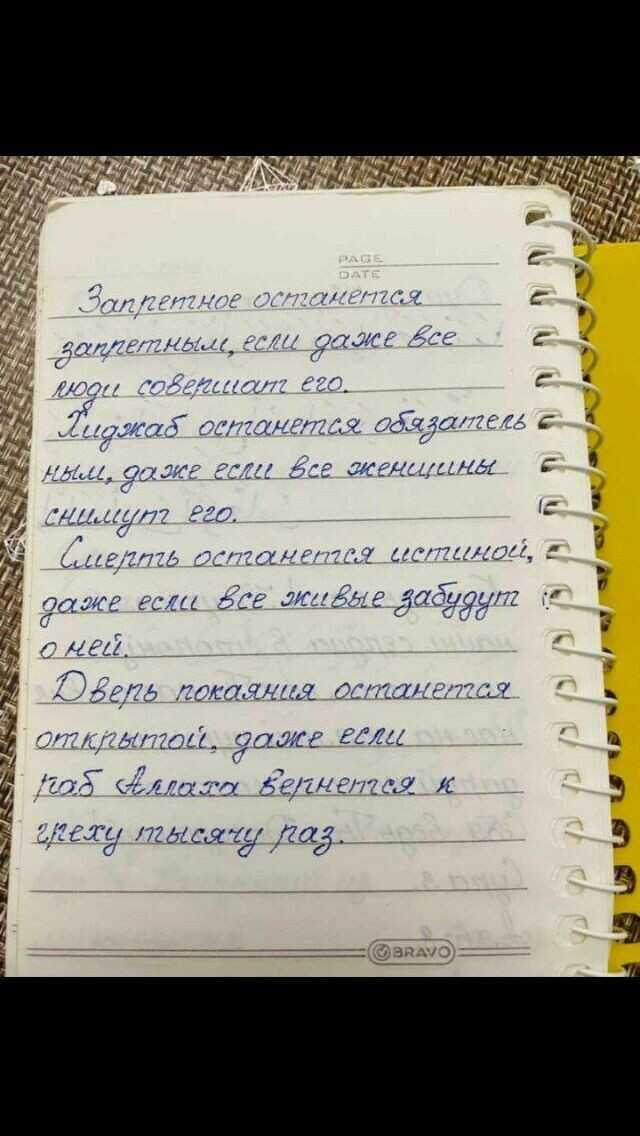 PAGE
DATE
Запретное останется
запретным, если даже все
люди совершат его.
Хиджаб останется обязатель
ным, даже если все женщины
снимут его.
Смерть останется истиной,
даже если все живые забудут
о ней.
Дверь покаяния останется
открытой, даже если
раб Аллаха вернется к
греху тысячу раз.
BRAVO